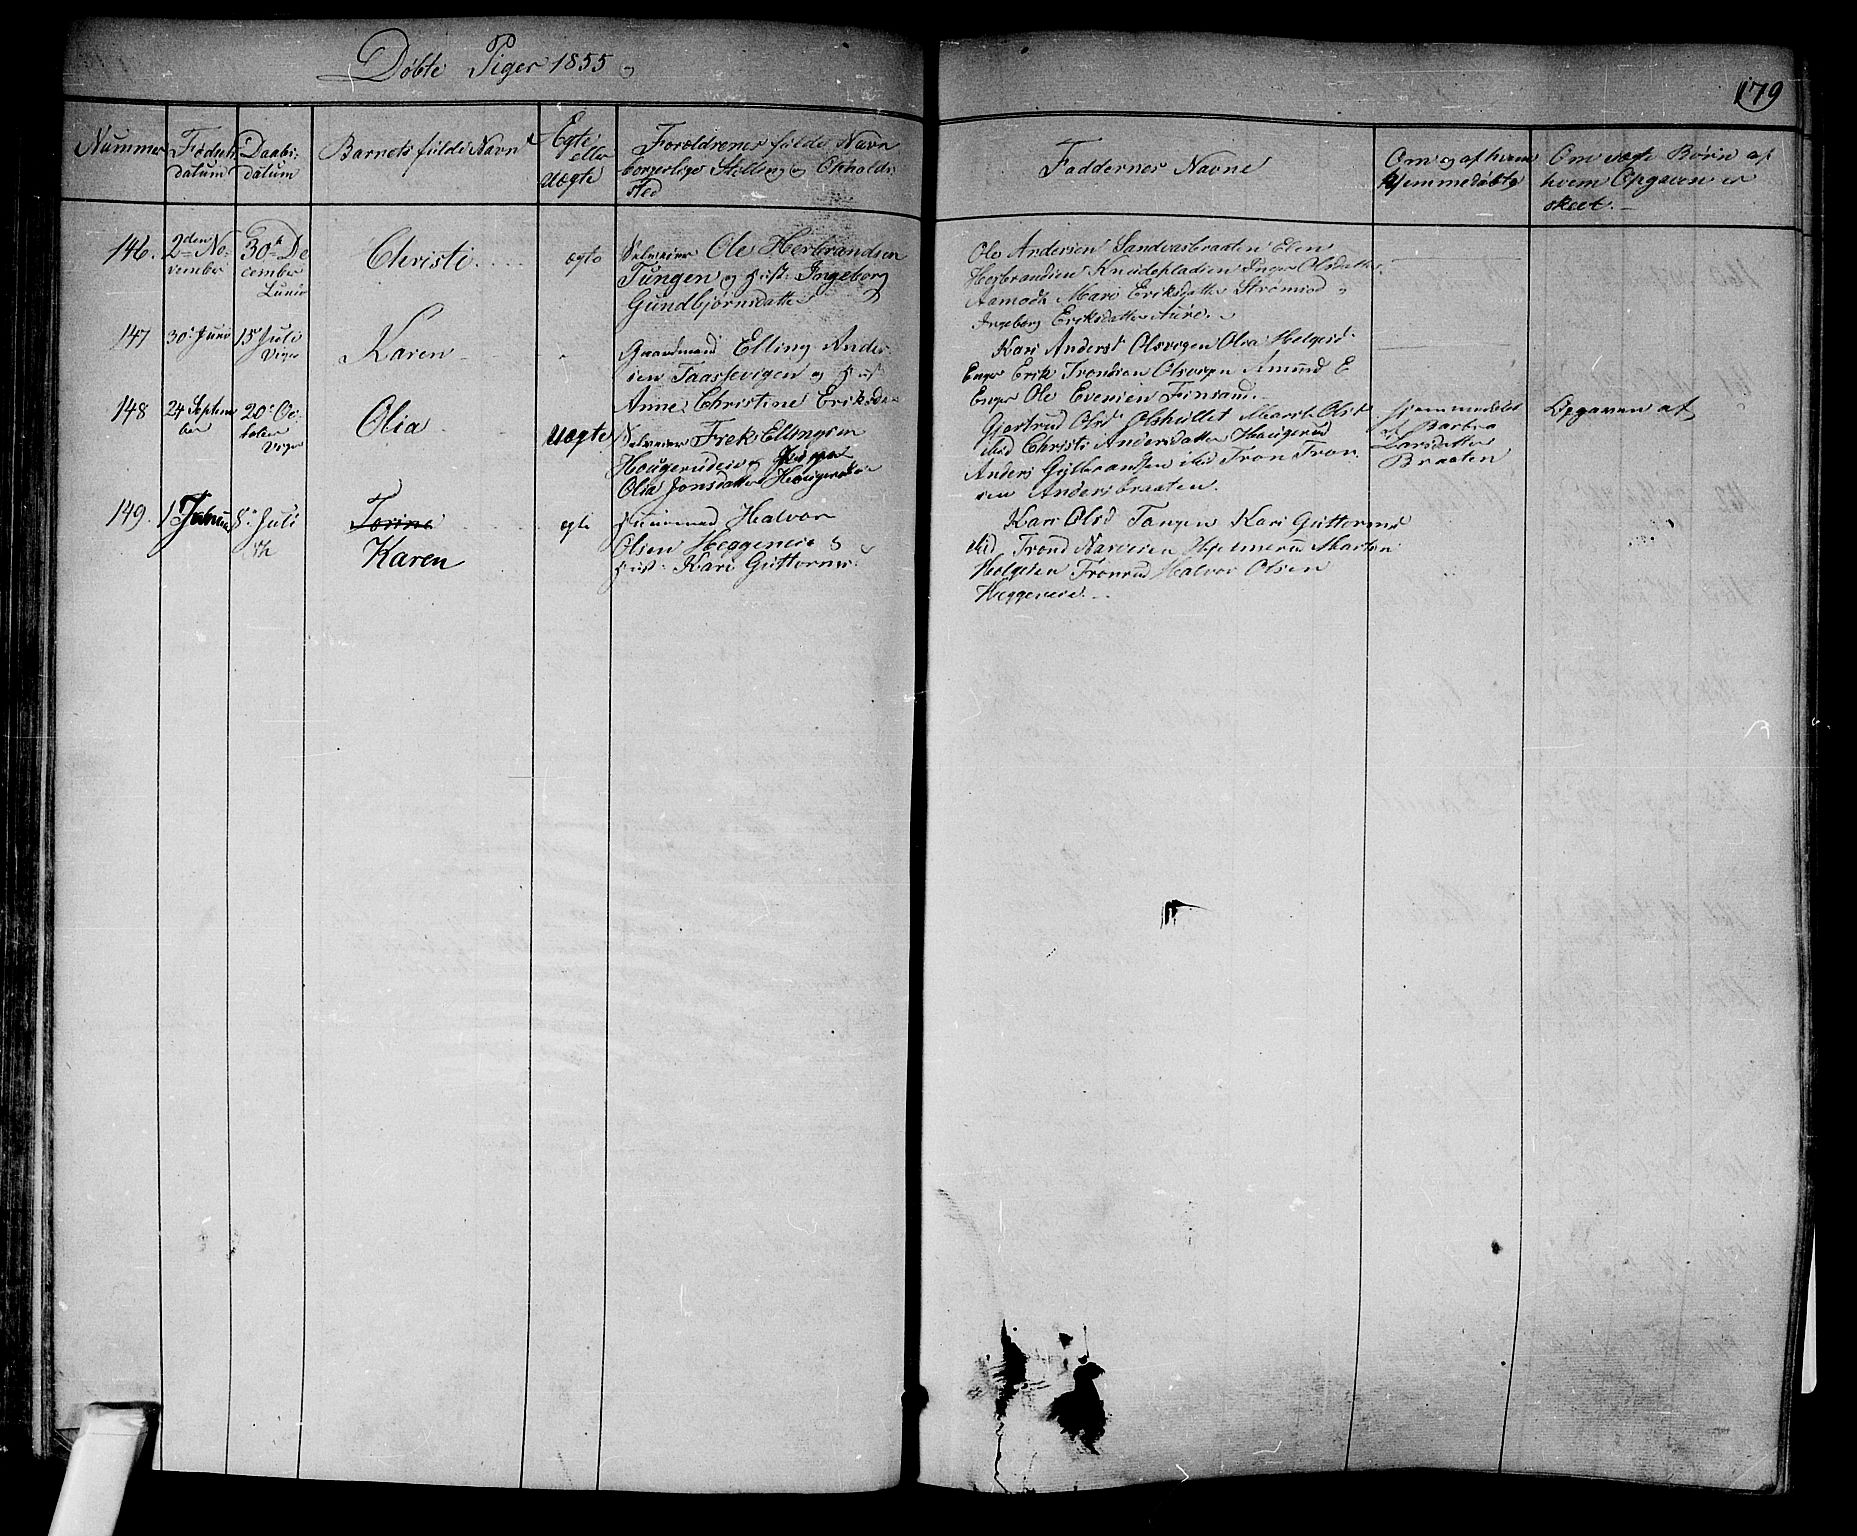 Döbte Piger 1855
179
Nummer
Födsels datum
Daabs datum
Barnets fulde Navn
Egte eller Uægte
Forældrenes fulde Navn
borgerlige Stilling og Opholds
sted
Faddernes Navne
Om og af hvem
Hjemmedöbte
Om uægte Börn af
hvem Opgaven er
skeet.
146.
2den No-
vember
30te De
cember
Christi
ægte
Selveier Ole Herbrandsen
Tungen og Hust. Ingeborg
Gundbjörnsdatter
Ole Andersen Sandvasbraaten Elen
Herbrandsen Knudspladsen Inger Olsdatter
Aamodt Mari Eriksdatter Strömsod
Ingeborg Eriksdatter Aure.
147
30te Juni
15de Juli
Viger
Karen
Gaardmand Elling Ander
sen Taassevigen og Hust
Anne Christine Eriksda
Kari Anderst Olsvegen Olia Helgesd
Enger Erik Trondsen Olsvegen Amund E
Enger Ole Evensen Finsand.
148
24 Septem
ber
20de Oc
tober
Viger
Olia
Uægte
Selveier Erek Ellingsen
Hougerudeie og Pige
Olia Jonsdatter Hougerudeie
Gjertrud Olsd Olshullet Marit Olst
ibid Christi Andersdatter Hougerud
Anders Gulbrandsen ibid Tron Tron
sen Andersbraaten.
Hjemmedöbt
af Barbra
Larsdatter
Braaten
Opgaven af
149.
1 Januar
8de Juli
Torine
Karen
ægte
Huusmand Halvor
Olsen Heggeneie &
Hust. Kari Guttorms
Kari Olsd Tangen Kari Guttormsd
ibid Trond Narvesen Hjelmerud Marten
Helgesen Tronrud Halvor Olsen
Heggeneie.